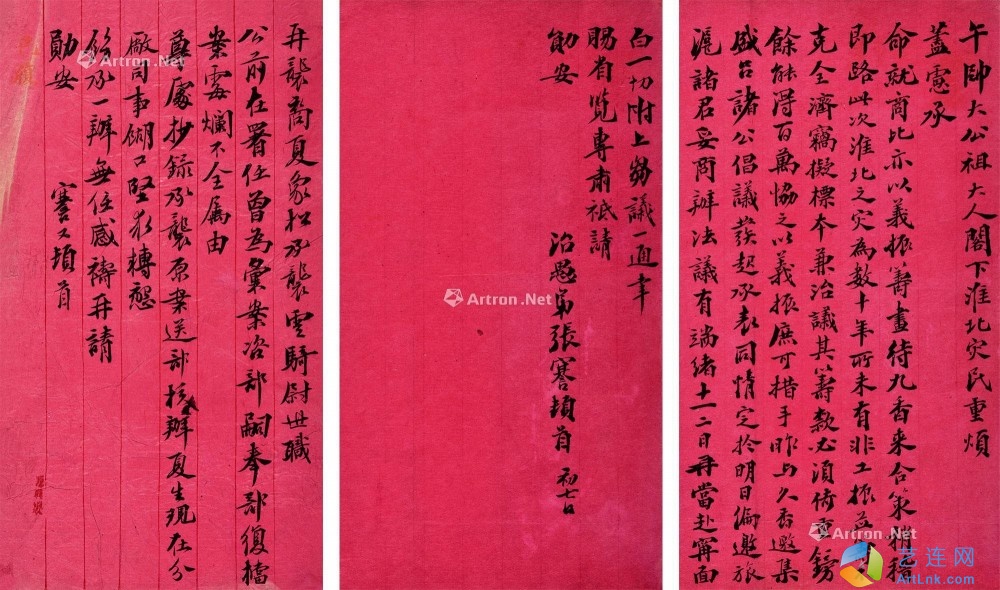 午帥大公祖大人閣下淮北灾民重煩
藎憲承
命就商比亦以義振籌畫待九香来合策稍稽
即路此次淮北之灾為數十年所未有非工振並
克全濟竊擬標本兼治議其籌款必須倚重鎊
餘能得百萬協之以義振庶可措手昨与久香邀集
盛吕諸公倡議發起承表同情定於明日徧邀旅
滬諸君妥商辦法議有端緒十一二日再當赴寧面
白一切附上芻議一通幸
賜省覽專肅祗請
勛安
治愚弟張謇頓首 初七日
再襲裔夏象松承襲雲騎尉世職
公前在署任曾為彙案咨部嗣奉部復檔
案霉爛不全屬由
處抄錄承襲原案送部核辦夏生現在分
廠司事餬口堅求轉懇
飭承一辦無任感禱再請
勛安
謇又頓首
Artron.Net
Artron.Net
Artron.Net
Artron.Net
艺连网
ArtLnk.com